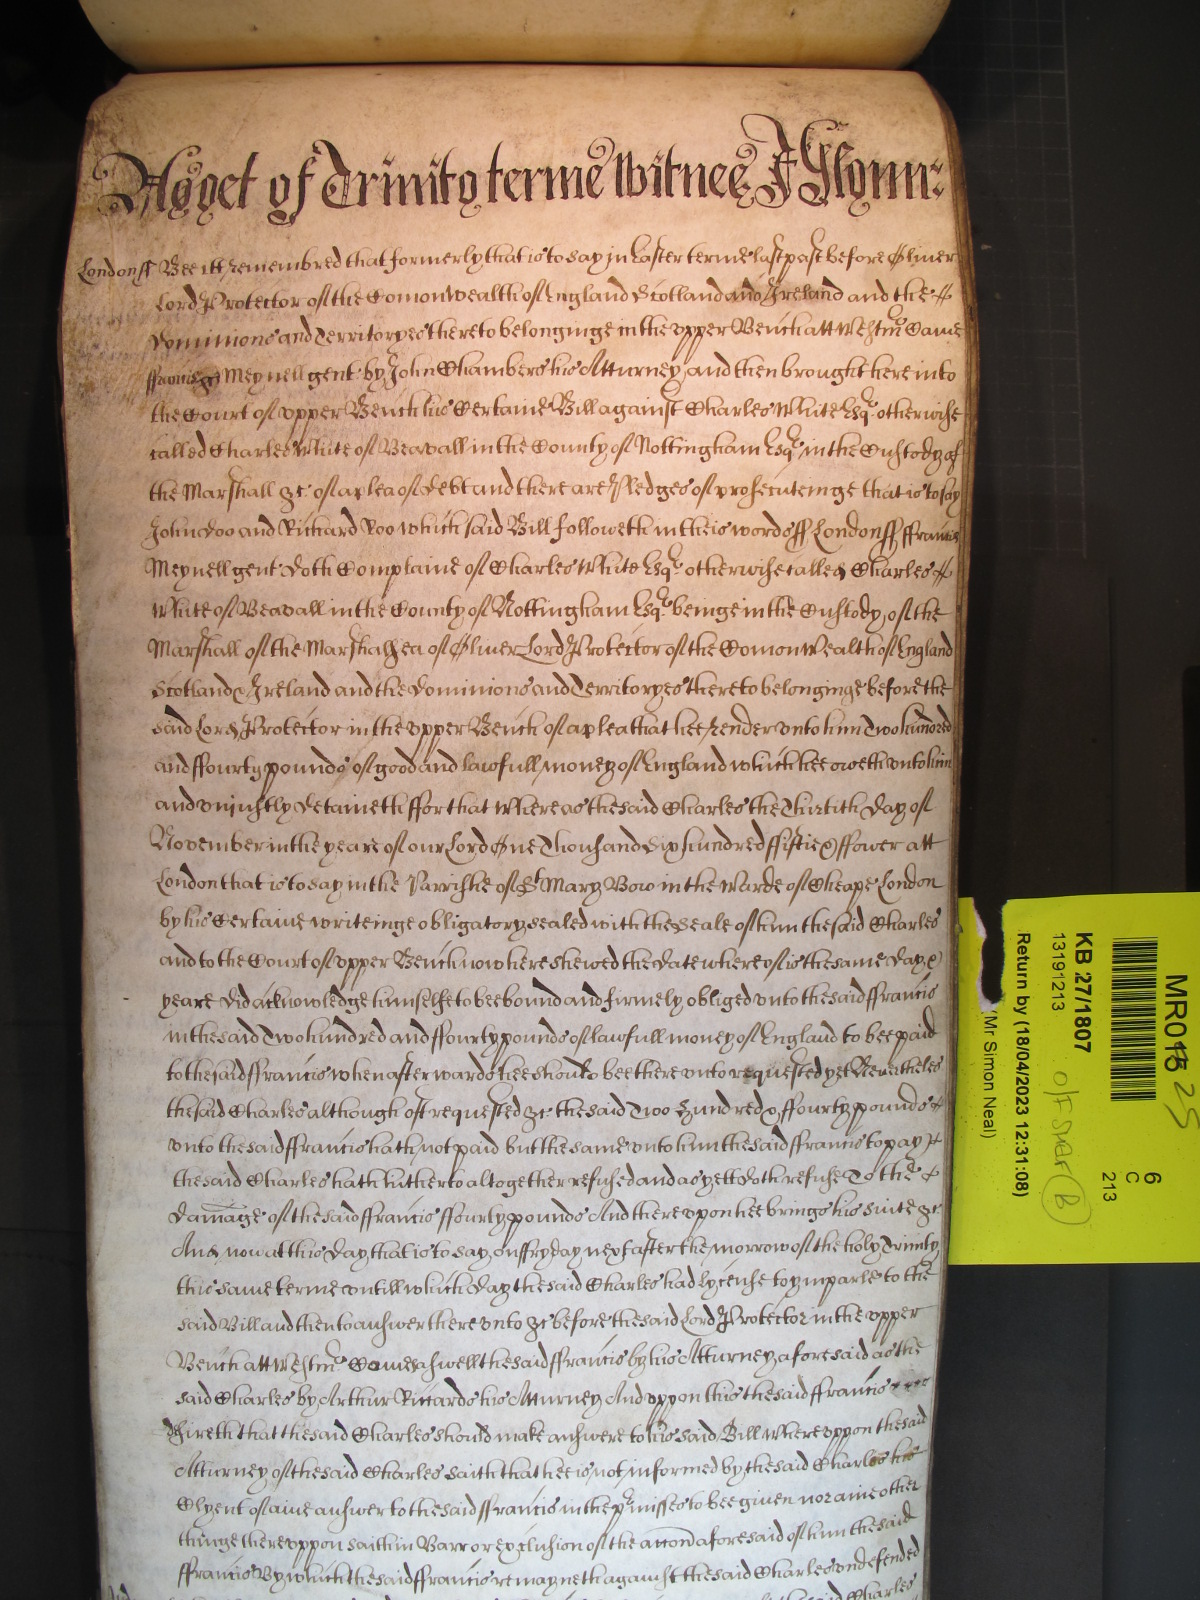 As yet of Trinity terme Witnes J Glynn:
London ss Bee itt remembred that formerly that is to say in Easter terme last past before Oliver
Lord Protector of the Comonwealth of England Scotland and Ireland and the
Dominions and Territoryes thereto belonginge in the upper Bench att Westmr Came
ffrancis Meynell gent. by John Chambers his Atturney and then brought here into
the Court of upper Bench his Certaine Bill against Charles White Esqr. otherwise
called Charles White of Beavall in the County of Nottingham Esqr. in the Custody of
the Marshall &c. of a plea of Debt and there are Pledges of prosecuteinge that is to say
John Doo and Richard Roo which said Bill followeth in theis words ss London ss ffrancis
Meynell gent. doth Complaine of Charles White Esqr. otherwise called Charles
White of Beavall in the County of Nottingham Esqr. beinge in the Custody of the
Marshall of the Marshalsea of Oliver Lord Protector of the Comon Wealth of England
Scotland & Ireland and the Dominions and Territoryes thereto belonginge before the
said Lord Protector in the upper Bench of a plea that hee render unto him Two hundred
and ffourty pounds of good and lawfull money of England which hee oweth unto him
and uniustly detaineth ffor that Whereas the said Charles the Thirtith day of
November in the yeare of our Lord One Thousand Six hundred ffiftie & ffower att
London that is to say in the Parrishe of St Mary Bow in the Warde of Cheape London
by his Certaine writeinge obligatory sealed with the Seale of him the said Charles
and to the Court of upper Bench now here shewed the date whereof is the same day &
yeare did acknowledge himselfe to bee bound and firmely obliged unto the said ffrancis
in the said Two hundred and ffourty pounds of lawfull money of England to bee paid
to the said ffrancis when afterwards hee should bee thereunto requested yet Neverthelés
the said Charles although oft requested &c. the said Two Hundred & ffourty pounds
unto the said ffrancis hath not paid but the same unto him the said ffrancis to pay
the said Charles hath hitherto altogether refused and as yett doth refuse To the
damage of the said ffrancis ffourty pounds And thereupon hee brings his suite &c.
And now at this day that is to say on ffryday next after the morrow of the holy Trinity
this same terme untill which day the said Charles had lycense to ymparle to the
said Bill and then to answer thereunto &c before the said Lord Protector in the upper
Bench att Westmr. Come aswell the said ffrancis by his Atturney aforesaid as the
said Charles by Arthur Ricards his Atturney And uppon this the said ffrancis
desireth that the said Charles should make answere to his said Bill Whereuppon the said
Atturney of the said Charles saith that hee is not informed by the said Charles his
Clyent of anie answer to the said ffrancis in the pr.misses to bee given nor anie other
thinge thereuppon saith in Barr or exclusion of the accon aforesaid of him the said
ffrancis By which the said ffrancis remayneth against the said Charles undefended
MR015
25
KB 27/1807
13191213
Return by (18/04/2023 12:31:08)
(Mr Simon Neal)
6
C
213
B